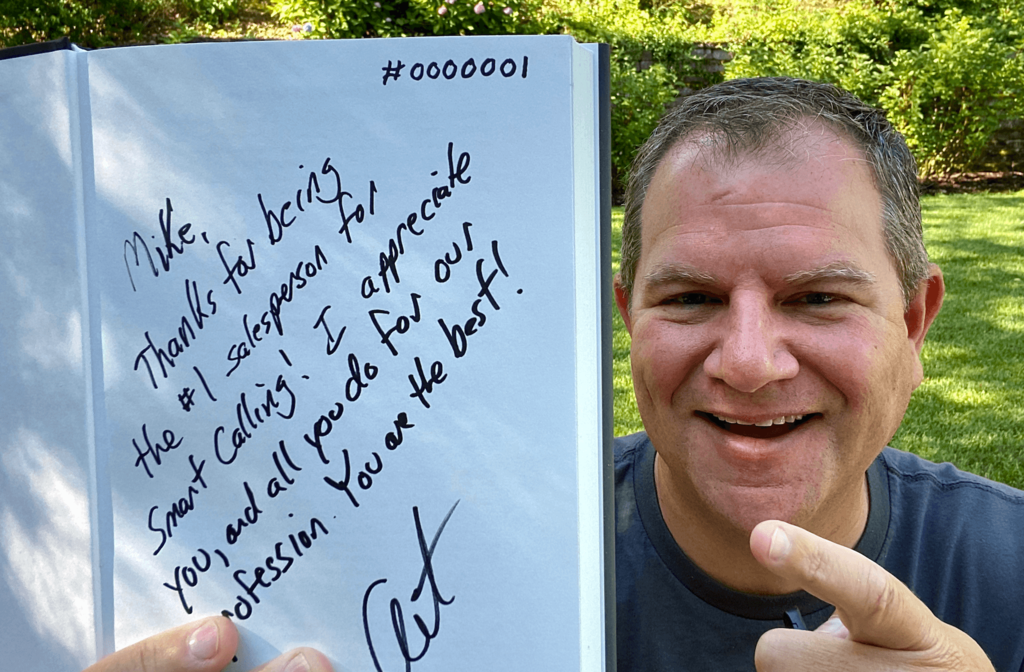 #0000001
Mike,
Thanks for being
the #1 salesperson for
Smart Calling! I appreciate
you, and all you do for our
rofession. You are the best!
Art